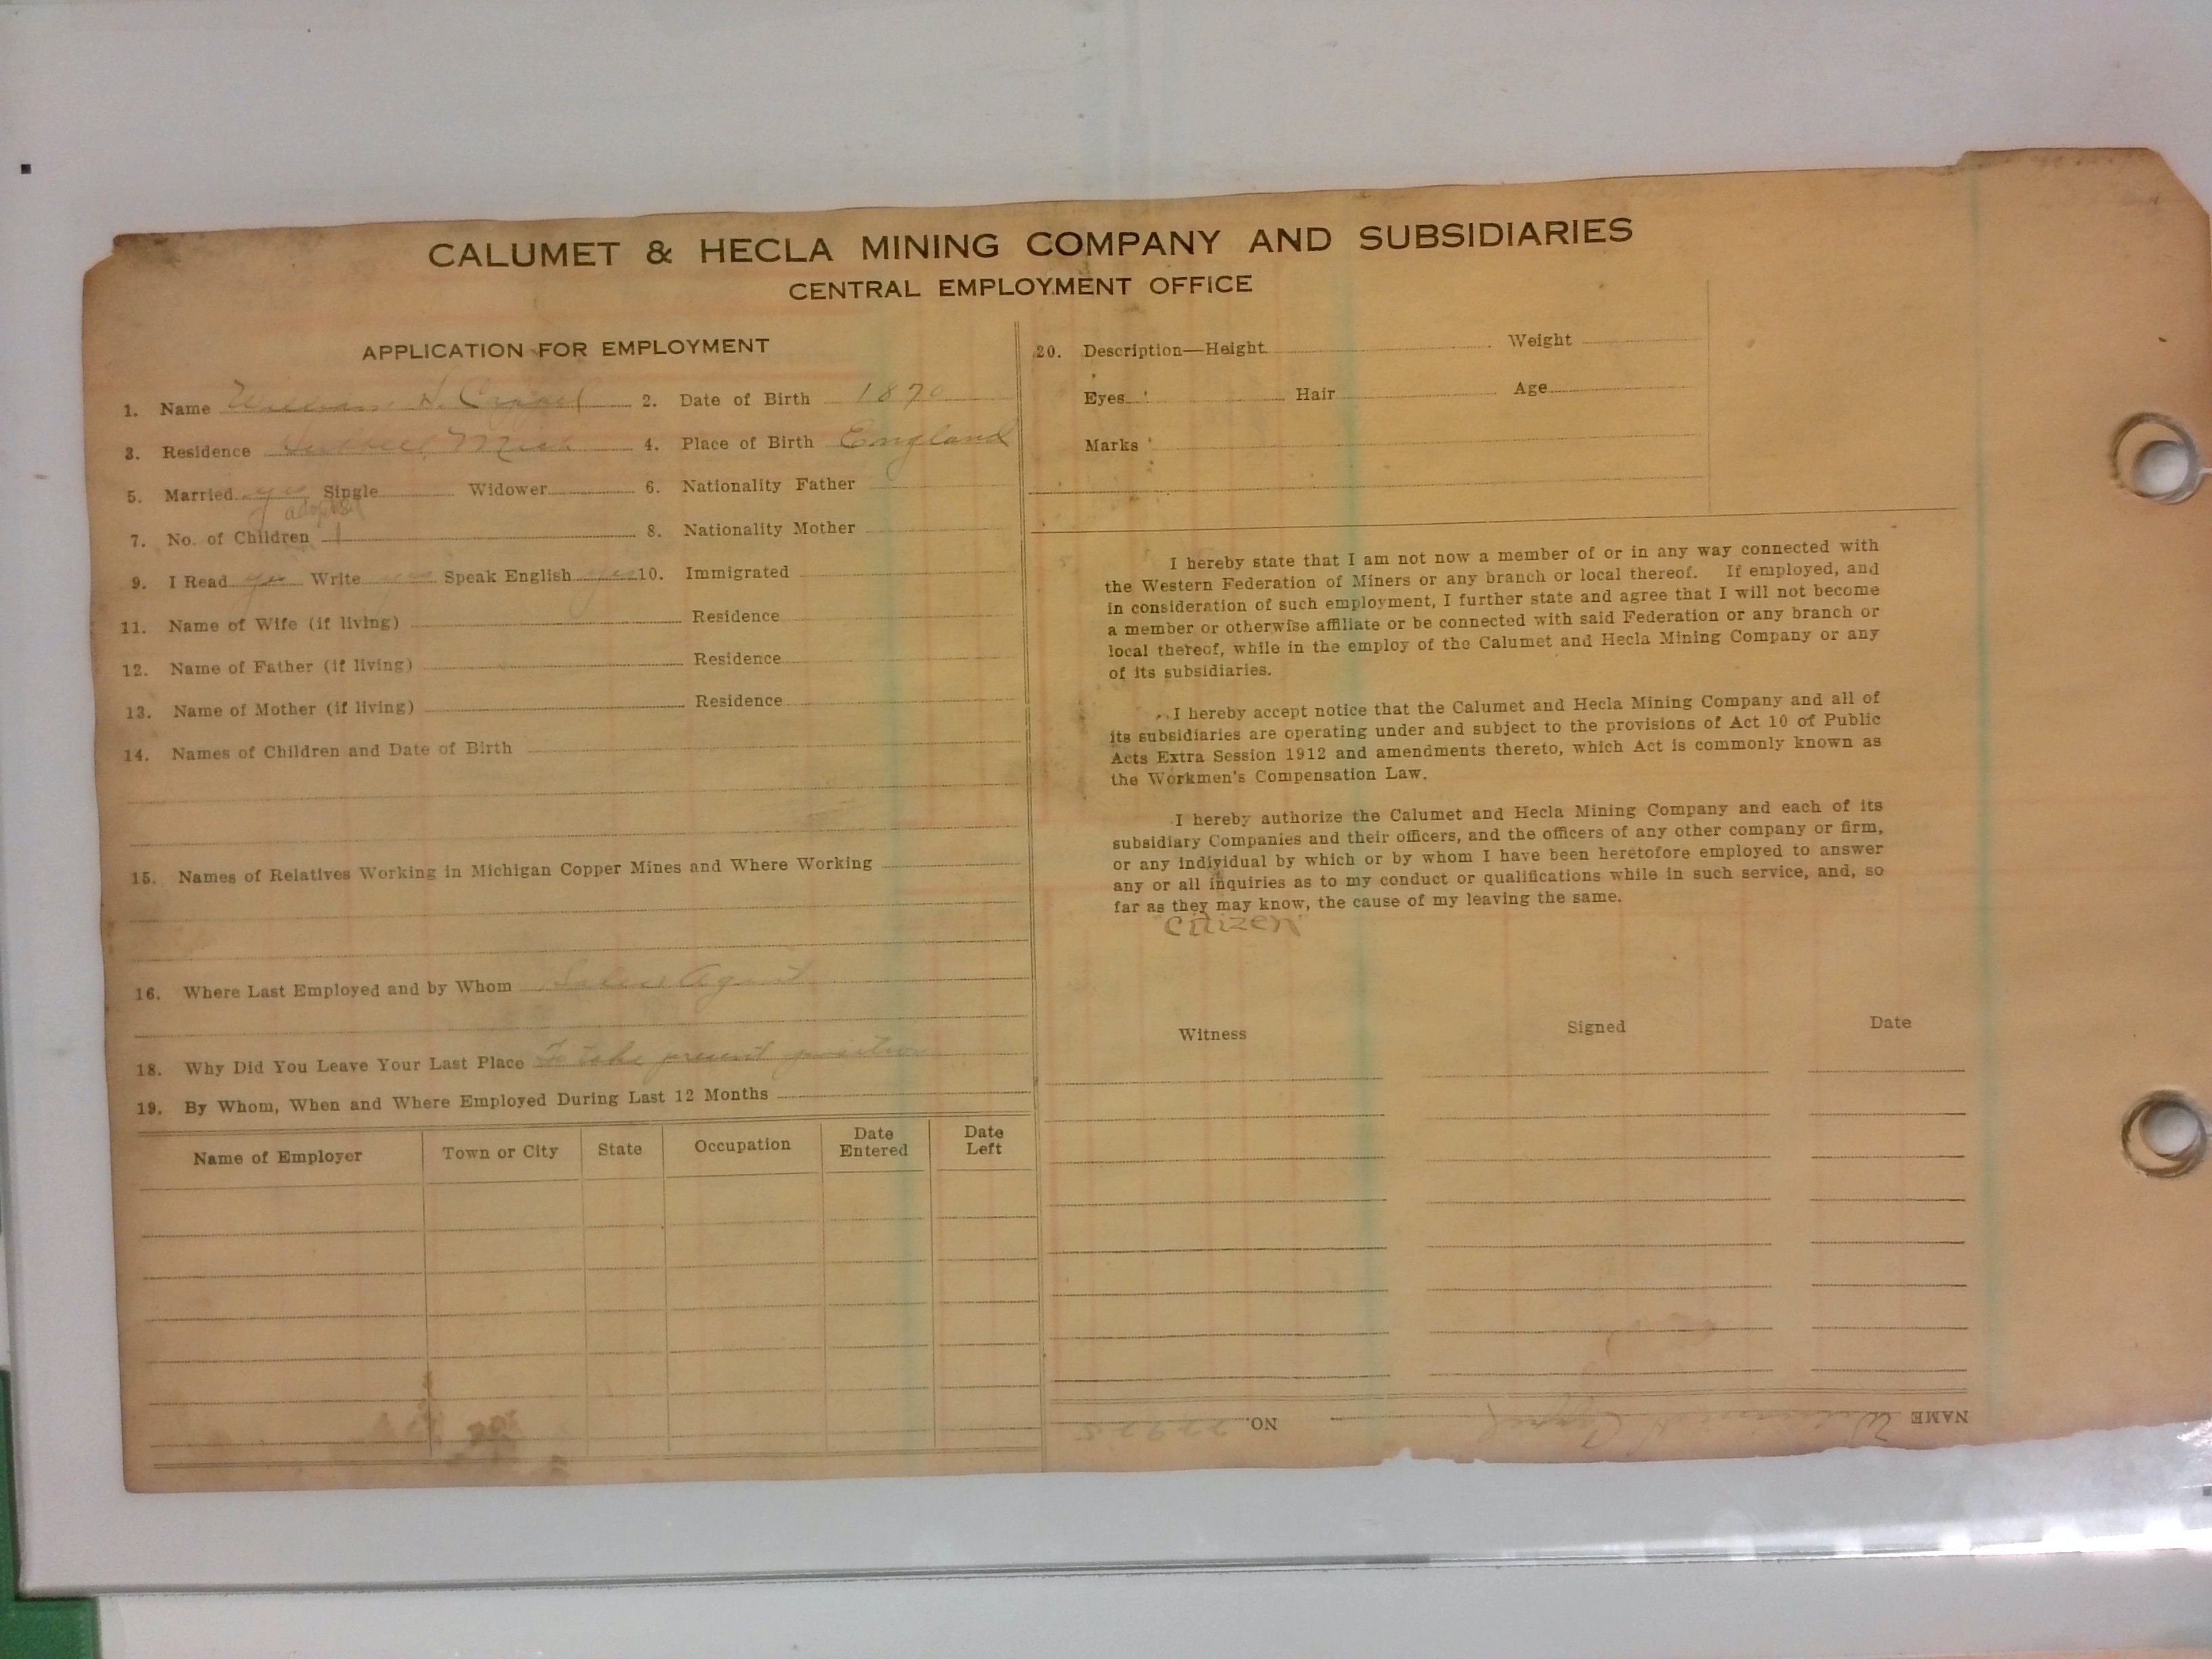 CALUMET & HECLA MINING COMPANY AND SUBSIDIARIES
CENTRAL EMPLOYMENT OFFICE
APPLICATION FOR EMPLOYMENT
1. Name William H. 2. Date of Birth 1870
3. Residence Mich 4. Place of Birth England
5. Married yes Single Widower 6. Nationality Father
adopted
7. No. of Children 1 8. Nationality Mother
9. I Read yes Write yes Speak English yes 10. Immigrated
11. Name of Wife (if living) Residence
12. Name of Father (if living) Residence
13. Name of Mother (if living) Residence
14. Names of Children and Date of Birth
15. Names of Relatives Working in Michigan Copper Mines and Where Working
16. Where Last Employed and by Whom Sales Agent
18. Why Did You Leave Your Last Place To take present position
19. By Whom, When and Where Employed During Last 12 Months
Name of Employer Town or City State Occupation Date Entered Date Left
20. Description—Height Weight
Eyes Hair Age
Marks
I hereby state that I am not now a member of or in any way connected with
the Western Federation of Miners or any branch or local thereof. If employed, and
in consideration of such employment, I further state and agree that I will not become
a member or otherwise affiliate or be connected with said Federation or any branch or
local thereof, while in the employ of the Calumet and Hecla Mining Company or any
of its subsidiaries.
I hereby accept notice that the Calumet and Hecla Mining Company and all of
its subsidiaries are operating under and subject to the provisions of Act 10 of Public
Acts Extra Session 1912 and amendments thereto, which Act is commonly known as
the Workmen's Compensation Law.
I hereby authorize the Calumet and Hecla Mining Company and each of its
subsidiary Companies and their officers, and the officers of any other company or firm,
or any individual by which or by whom I have been heretofore employed to answer
any or all inquiries as to my conduct or qualifications while in such service, and, so
far as they may know, the cause of my leaving the same.
Citizen
Witness Signed Date
NAME William H. NO. 27925